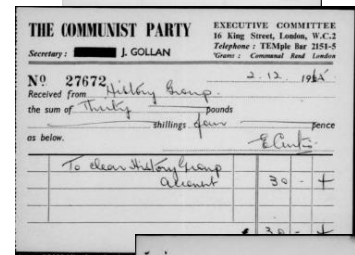 THE COMMUNIST PARTY
EXECUTIVE COMMITTEE
16 King Street, London, W.C.2
Telephone : TEMple Bar 2151-5
'Grams : Communal Rand London
Secretary : J. GOLLAN
Nº 27672
2. 12. 1965
Received from History Group.
the sum of Thirty pounds
shillings four pence
as below.
To clear History Group
Account 30 - 4
30 - 4